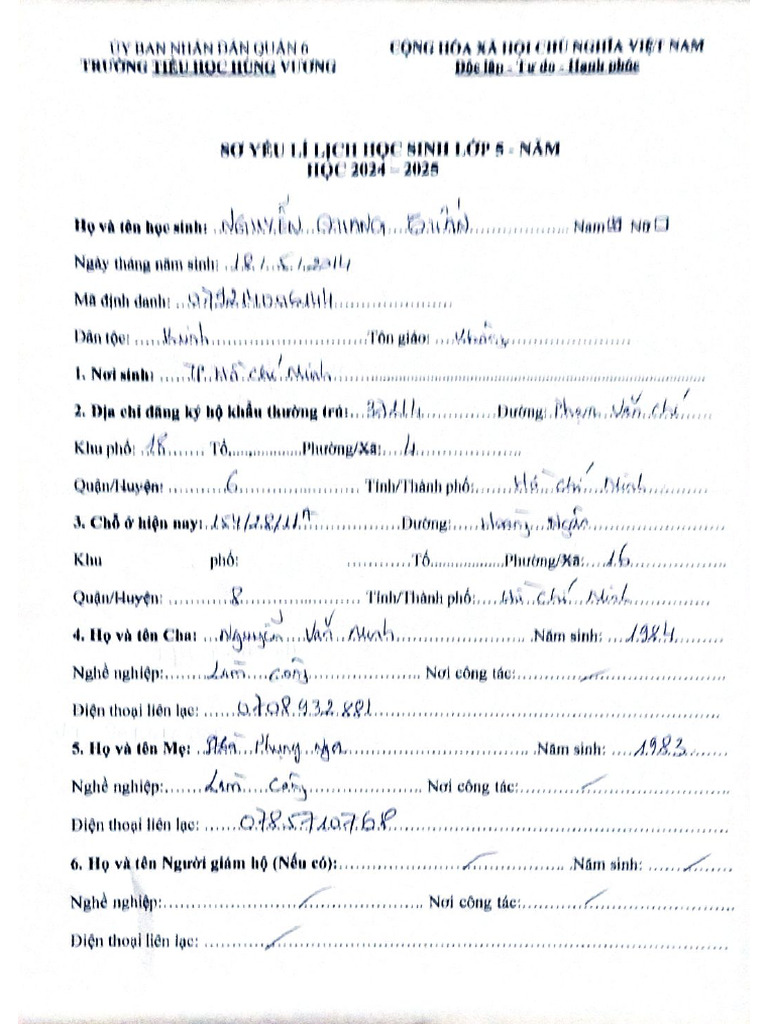 ỦY BAN NHÂN DÂN QUẬN 6
TRƯỜNG TIỂU HỌC HÙNG VƯƠNG
CỘNG HÒA XÃ HỘI CHỦ NGHĨA VIỆT NAM
Độc lập - Tự do - Hạnh phúc
SƠ YẾU LÍ LỊCH HỌC SINH LỚP 5 - NĂM
HỌC 2024 – 2025
Họ và tên học sinh: NGUYỄN QUANG Nam ☑ Nữ ☐
Ngày tháng năm sinh: 18/5/2014
Mã định danh:
Dân tộc: Kinh Tôn giáo: Không
1. Nơi sinh: TP. Hồ Chí Minh
2. Địa chỉ đăng ký hộ khẩu thường trú: Đường: Phạm Văn Chí
Khu phố: 18 Tổ Phường/Xã: 4
Quận/Huyện: 6 Tỉnh/Thành phố: Hồ Chí Minh
3. Chỗ ở hiện nay: 184/28/11A Đường: Hoàng Ngân
Khu phố: Tổ Phường/Xã: 16
Quận/Huyện: 8 Tỉnh/Thành phố: Hồ Chí Minh
4. Họ và tên Cha: Nguyễn Văn Minh Năm sinh: 1984
Nghề nghiệp: Làm công Nơi công tác:
Điện thoại liên lạc: 0708 932 881
5. Họ và tên Mẹ: Phụng Nga Năm sinh: 1983
Nghề nghiệp: Làm công Nơi công tác:
Điện thoại liên lạc: 0785710768
6. Họ và tên Người giám hộ (Nếu có): Năm sinh:
Nghề nghiệp: Nơi công tác:
Điện thoại liên lạc: